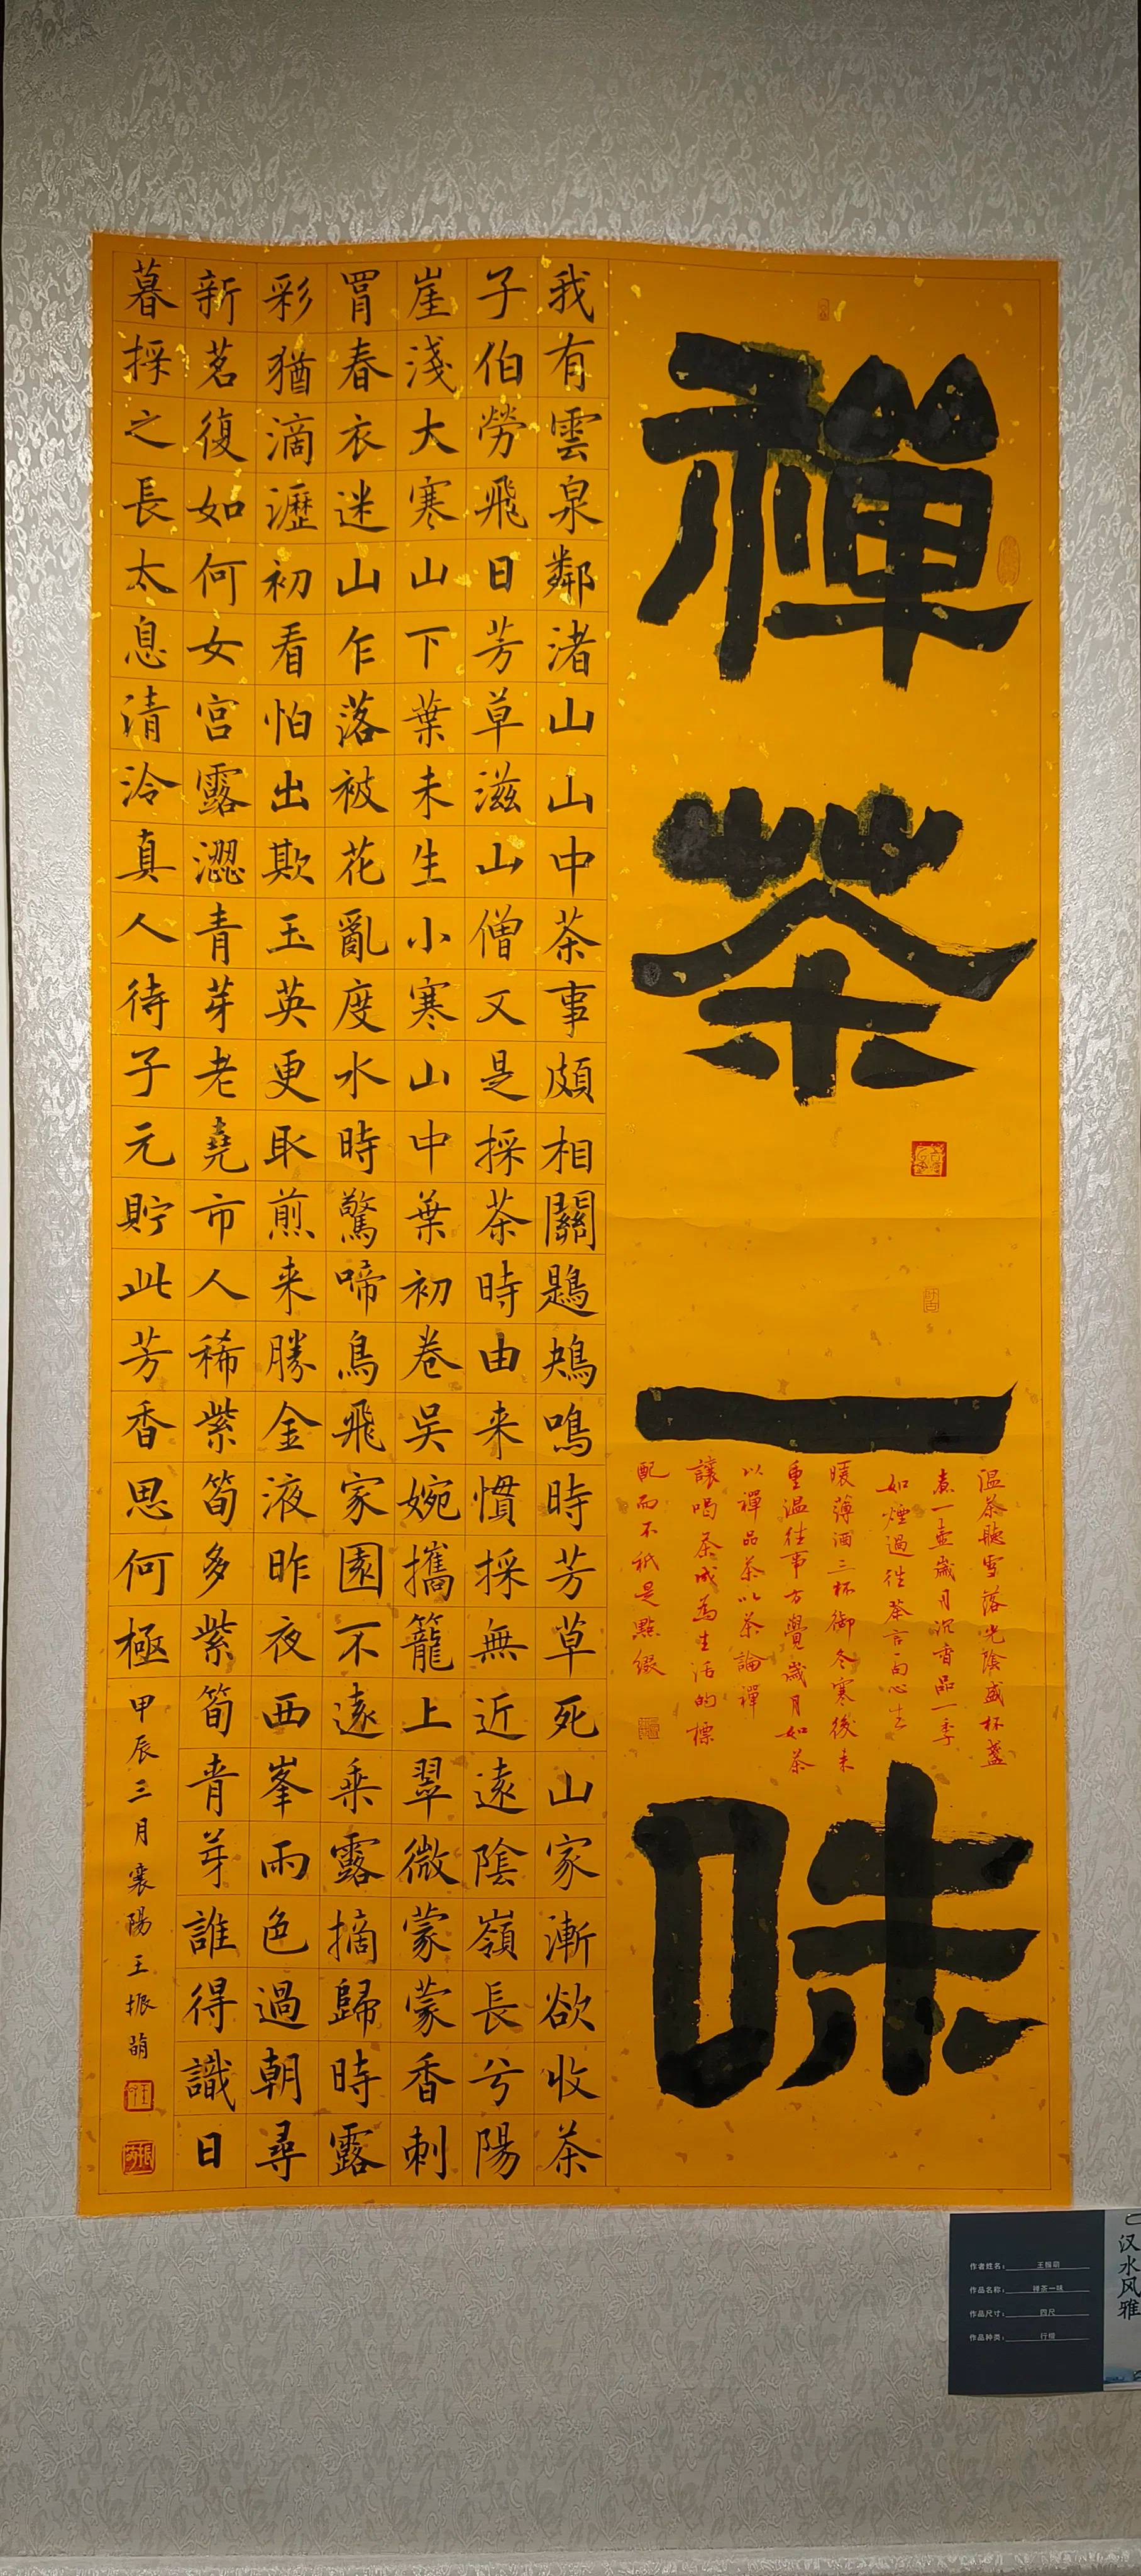 禪茶一味
溫茶聽雪落光陰盛杯盞
煮一壺歲月沉香品一季
如煙過往茶言而心生
暖薄酒三杯御冬寒後来
重溫往事方覺歲月如茶
以禪品茶以茶論禪
讓喝茶成為生活的標
配而不衹是點綴
我有雲泉鄰渚山山中茶事頗相關鶗鴂鳴時芳草死山家漸欲收茶
子伯勞飛日芳草滋山僧又是採茶時由来慣採無近遠陰嶺長兮陽
崖淺大寒山下葉未生小寒山中葉初卷吳婉攜籠上翠微蒙蒙香刺
罥春衣迷山乍落被花亂度水時驚啼鳥飛家園不遠乘露摘歸時露
彩猶滴瀝初看怕出欺玉英更取煎来勝金液昨夜西峯雨色過朝尋
新茗復如何女宮露澀青芽老堯市人稀紫筍多紫筍青芽誰得識日
暮採之長太息清泠真人待子元貯此芳香思何極
甲辰三月襄陽王振萌
汉水风雅
作者姓名：王振萌
作品名称：禅茶一味
作品尺寸：四尺
作品种类：行楷